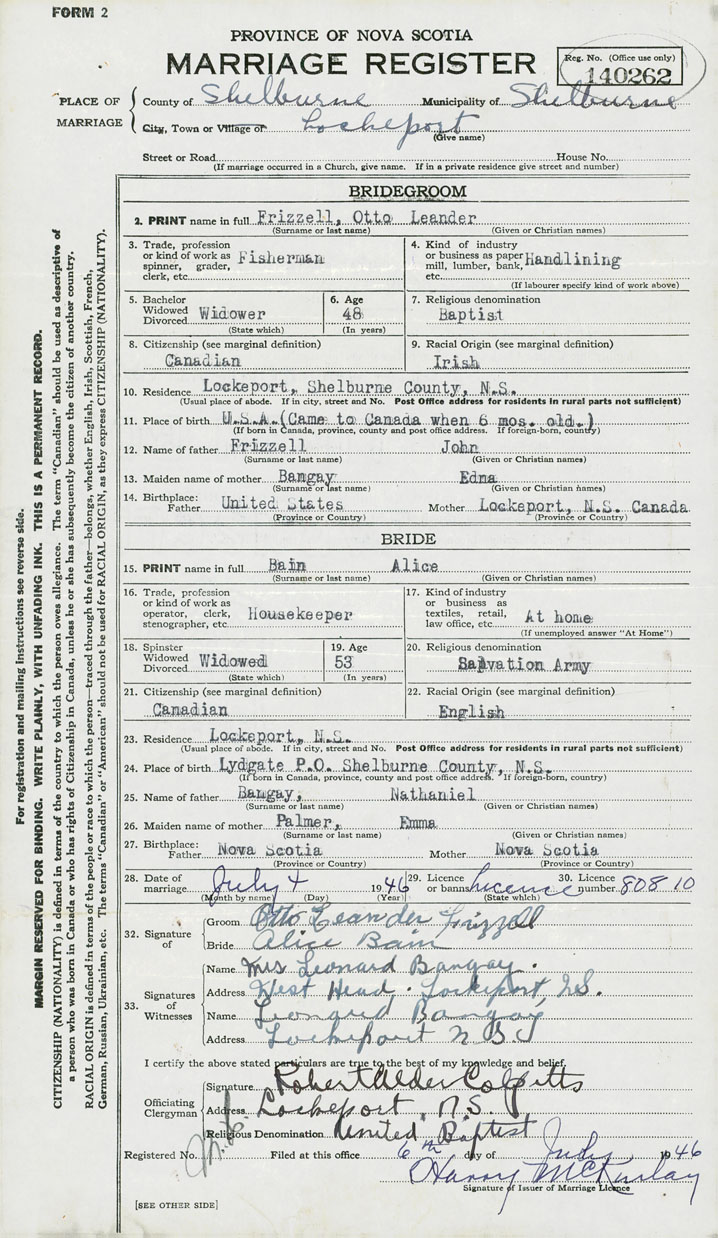 FORM 2
PROVINCE OF NOVA SCOTIA
MARRIAGE REGISTER
Reg. No. (Office use only)
140262
PLACE OF MARRIAGE
County of Shelburne Municipality of Shelburne
City, Town or Village of Lockeport
(Give name)
Street or Road House No.
(If marriage occurred in a Church, give name. If in a private residence give street and number)
BRIDEGROOM
2. PRINT name in full Frizzell, Otto Leander
(Surname or last name) (Given or Christian names)
3. Trade, profession or kind of work as spinner, grader, clerk, etc. Fisherman
4. Kind of industry or business as paper mill, lumber, bank, etc. Handlining
(If labourer specify kind of work above)
5. Bachelor Widowed Divorced Widower
(State which)
6. Age 48
(In years)
7. Religious denomination
Baptist
8. Citizenship (see marginal definition)
Canadian
9. Racial Origin (see marginal definition)
Irish
10. Residence Lockeport, Shelburne County, N.S.
(Usual place of abode. If in city, street and No. Post Office address for residents in rural parts not sufficient)
11. Place of birth U.S.A.(Came to Canada when 6 mos. old.)
(If born in Canada, province, county and post office address. If foreign-born, country)
12. Name of father Frizzell John
(Surname or last name) (Given or Christian names)
13. Maiden name of mother Bangay Edna
(Surname or last name) (Given or Christian names)
14. Birthplace: Father United States Mother Lockeport, N.S. Canada
(Province or Country) (Province or Country)
BRIDE
15. PRINT name in full Bain Alice
(Surname or last name) (Given or Christian names)
16. Trade, profession or kind of work as operator, clerk, stenographer, etc. Housekeeper
17. Kind of industry or business as textiles, retail, law office, etc. At home
(If unemployed answer "At Home")
18. Spinster Widowed Divorced Widowed
(State which)
19. Age 53
(In years)
20. Religious denomination
Salvation Army
21. Citizenship (see marginal definition)
Canadian
22. Racial Origin (see marginal definition)
English
23. Residence Lockeport, N.S.
(Usual place of abode. If in city, street and No. Post Office address for residents in rural parts not sufficient)
24. Place of birth Lydgate P.O. Shelburne County, N.S.
(If born in Canada, province, county and post office address. If foreign-born, country)
25. Name of father Bangay, Nathaniel
(Surname or last name) (Given or Christian names)
26. Maiden name of mother Palmer, Emma
(Surname or last name) (Given or Christian names)
27. Birthplace: Father Nova Scotia Mother Nova Scotia
(Province or Country) (Province or Country)
28. Date of marriage July 4 1946
(Month by name) (Day) (Year)
29. Licence or banns licence
(State which)
30. Licence number 80810
32. Signature of
Groom Otto Leander Frizzell
Bride Alice Bain
33. Signatures of Witnesses
Name Mrs Leonard Bangay.
Address West Head. Lockeport, N.S.
Name Leonard Bangay
Address Lockeport N.S.
I certify the above stated particulars are true to the best of my knowledge and belief,
Officiating Clergyman
Signature Robert Alder Colpitts
Address Lockeport, N.S.
Religious Denomination United Baptist
Registered No. Filed at this office 6th day of July 1946
Harry McKinlay
Signature of Issuer of Marriage Licence
[SEE OTHER SIDE]
For registration and mailing instructions see reverse side.
MARGIN RESERVED FOR BINDING. WRITE PLAINLY, WITH UNFADING INK. THIS IS A PERMANENT RECORD.
CITIZENSHIP (NATIONALITY) is defined in terms of the country to which the person owes allegiance. The term "Canadian" should be used as descriptive of
a person who was born in Canada or who has rights of Citizenship in Canada, unless he or she has subsequently become the citizen of another country.
RACIAL ORIGIN is defined in terms of the people or race to which the person—traced through the father—belongs, whether English, Irish, Scottish, French,
German, Russian, Ukrainian, etc. The terms "Canadian" or "American" should not be used for RACIAL ORIGIN, as they express CITIZENSHIP (NATIONALITY).